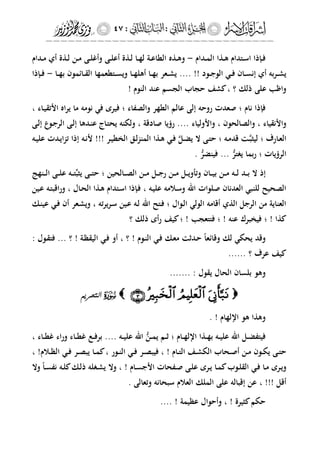 إشراقة الأزل
: ٤٧ :
فإذا استدام هـذا المـدام – وهـذه الطاعـة لهـا لـذة أعلـى وأغلـى مـن لـذة أي مـدام
يشـربه أي إنسـان فـي الوجـود !! .... يشـعر بهـا أهلهـا ويسـتطعمها القـائمون بهـا – فـإذا
واظب على ذلك ؟ ، كشـف حجاب الجسم عند النوم !
فإذا نام ؛ صعدت روحه إلى عالم الطهر والصفاء ؛ فيرى في نومه ما يراه الأتقيـاء ،
والأنقياء ، والصالحون ، والأولياء .... رؤيا صادقة ، ولكنه يحتاج عندها إلى الرجـوع إلى
العارف ؛ ليثبَّـت قدمـه ؛ حتـى لا يضـلّ فـي هـذا المنزلـق الخطيـر !!! لأنـه إذا تزايـدت عليـه
الرؤيات ؛ ربما يغترُّ ... فينضرُّ .
إذ لا بـد لـه مـن بيـان وتأويـل مـن رجـل مـن الصـالحين ؛ حتـى يثبِّتـه علـى الـنهج
الصحيح للنبي العدنان صلوات الله وسـلامه عليـه ، فإذا استدام هـذا الحـال ، وراقبته عـين
العناية من الرجل الذي أقامه الولي الوال ؛ فتح الله له عين سريرته ، ويشعر أن في عينـك
كذا ! ؛ فيخبرك عنه ! ؛ فتتعجب ! ؛ كيف رأى ذلك ؟
وقد يحكي لك وقائعاً حـدثت معـك في النـوم ! ؟ ، أو فـي اليقظـة ! ؟ ... فتقـول :
كيف عرف ؟ ......
وهو بلسان الحال يقول : .......
﴿ نَبَّأَنِيَ ٱلْعَلِيمُ ٱلْخَبِيرُ ٣ ﴾ التحريم
وهذا هو الإلهام ! .
فيتفضـل الله عليـه بهـذا الإلهـام ؛ ثـم يمـنُّ الله عليـه .... برفـع غطـاء وراء غطـاء ،
حتـى يكـون مـن أصـحاب الكشـف التـام ! ، فيبصـر فـي النـور ، كمـا يبصـر فـي الظـلام! ،
ويـرى مـا فـي القلـوب كمـا يـرى علـى صـفحات الأجسـام ! ، ولا يشـغله ذلـك كلـه نفسـاً ولا
أقل !!! ، عن إقباله على الملك العلام سبحانه وتعالى .
حكم كثيرة ! ، وأحوال عظيمة ! ....